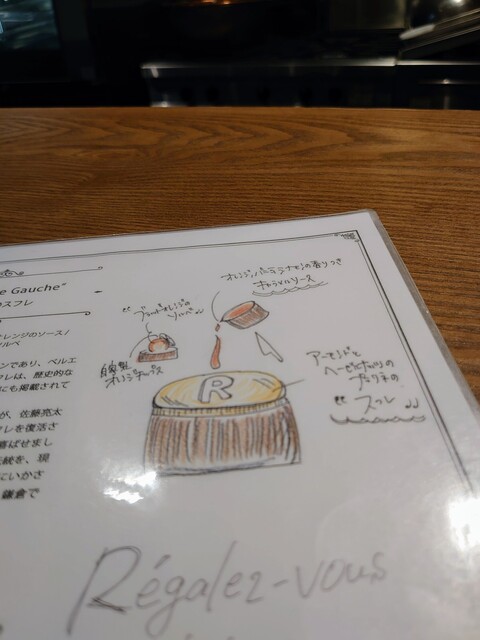 e Gauche"
スフレ
オレンジのソース/
ルベ
ンであり、ベルエ
フレは、歴史的な
にも掲載されて
が、佐藤亮太
フレを復活さ
喜ばせまし
伝統を、現
にいかさ
鎌倉で
オレンジ、バニラ、シナモンの香りつき
キャラメルソース
ブラッドオレンジの
ソルベ
自家製
オレンジチップス
アーモンドと
ヘーゼルナッツの
プラリネの
スフレ
R
Régalez-vous